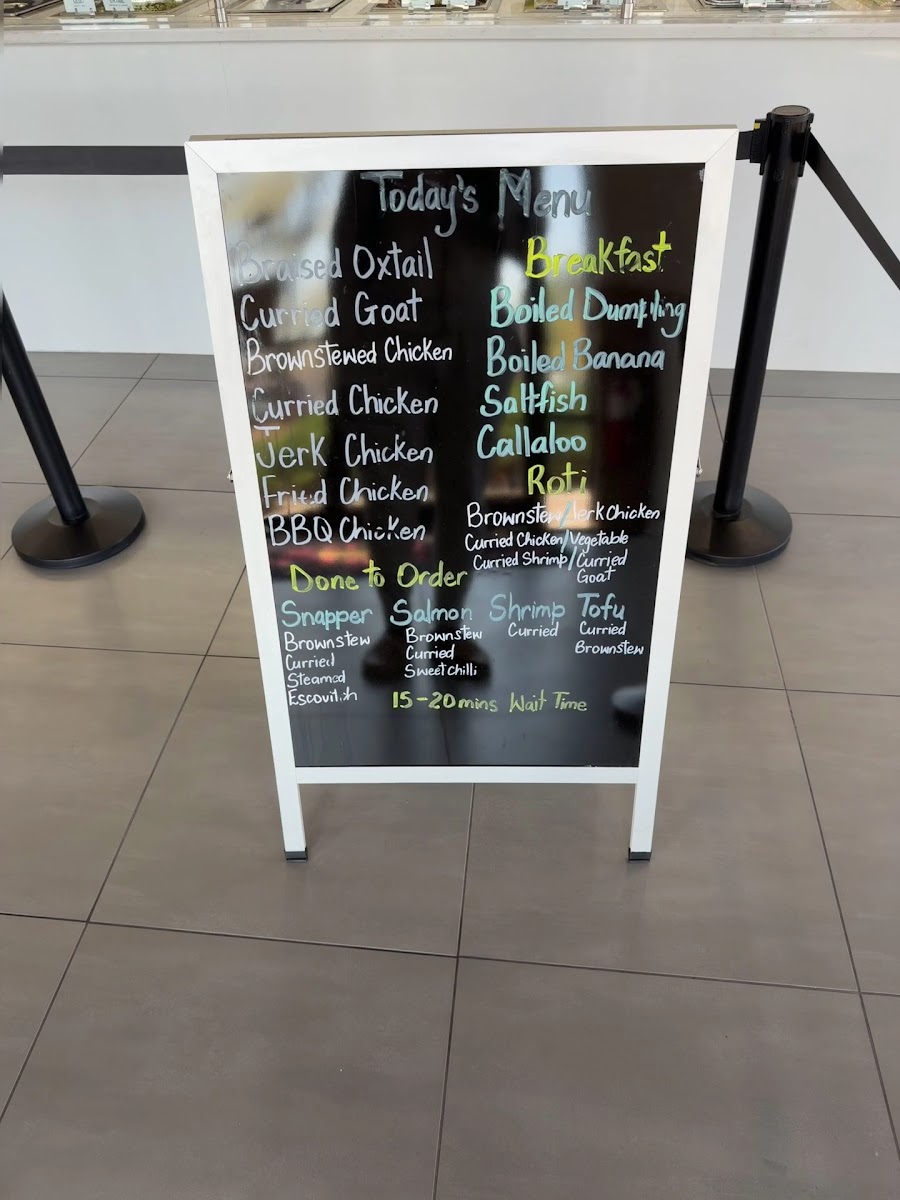 Today's Menu
Braised Oxtail
Curried Goat
Brownstewed Chicken
Curried Chicken
Jerk Chicken
Fried Chicken
BBQ Chicken
Breakfast
Boiled Dumpling
Boiled Banana
Saltfish
Callaloo
Roti
Brownstew/Jerk Chicken
Curried Chicken/Vegetable
Curried Shrimp/Curried
Goat
Done to Order
Snapper
Brownstew
Curried
Steamed
Escovitch
Salmon
Brownstew
Curried
Sweet chilli
Shrimp
Curried
Tofu
Curried
Brownstew
15-20 mins Wait Time